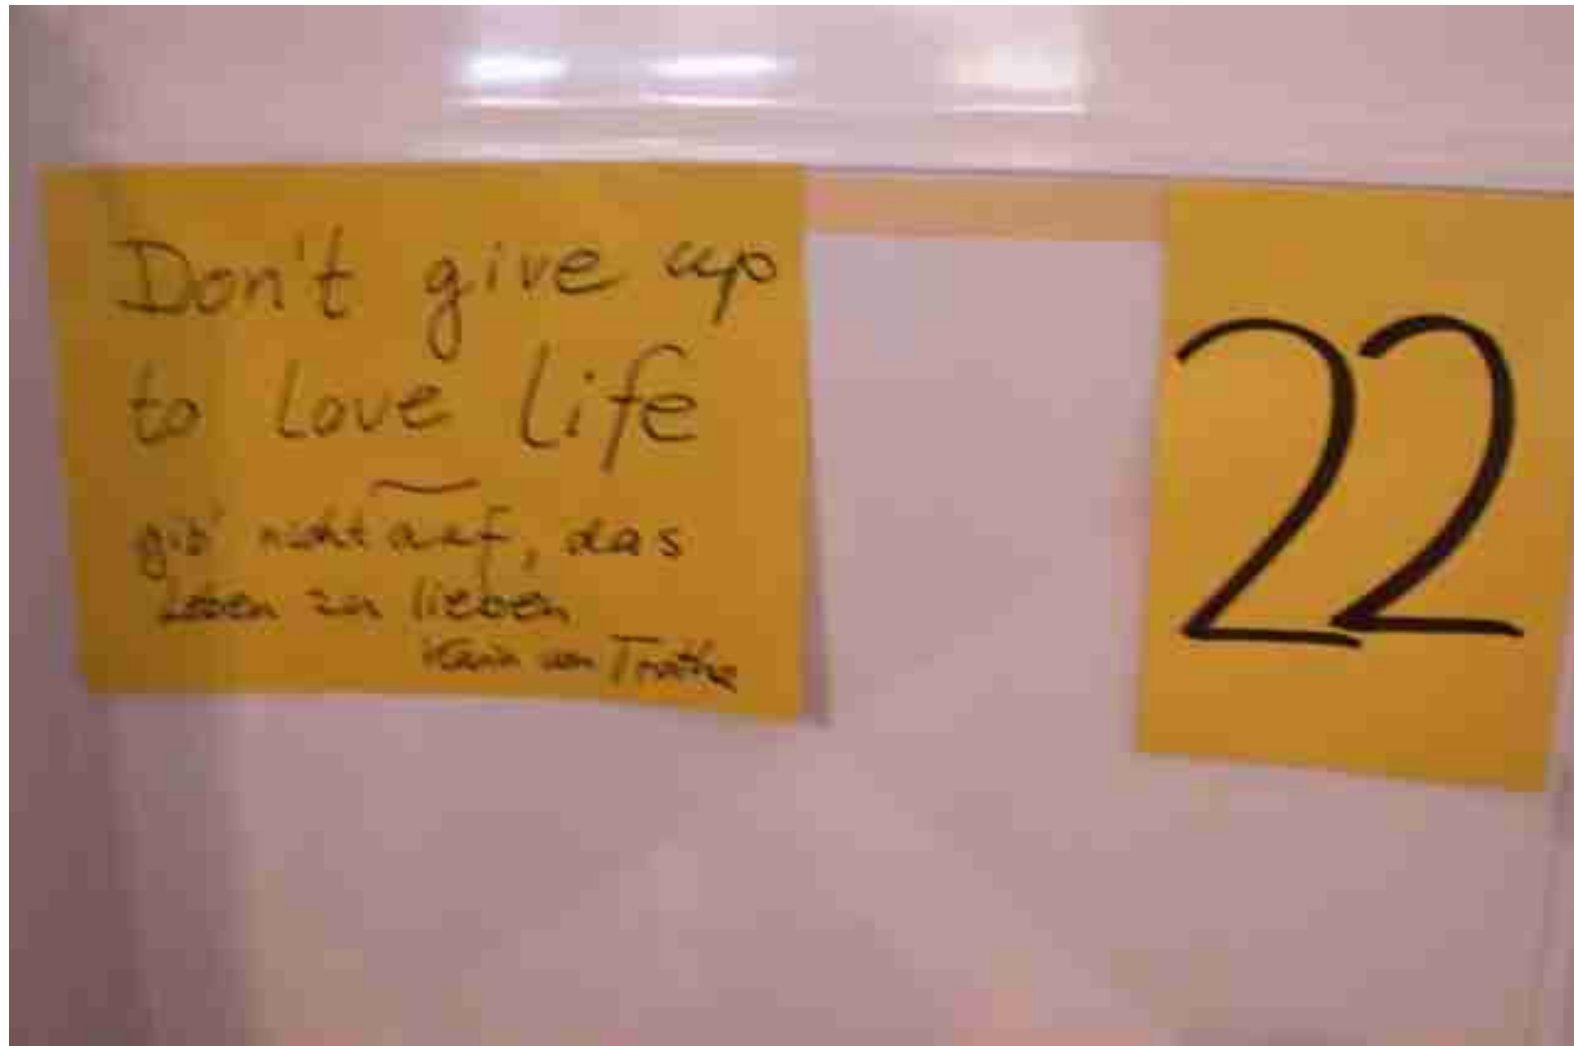 Don't give up
to Love Life
gib' nicht auf, das
Leben zu lieben
Karin von Trotha
22